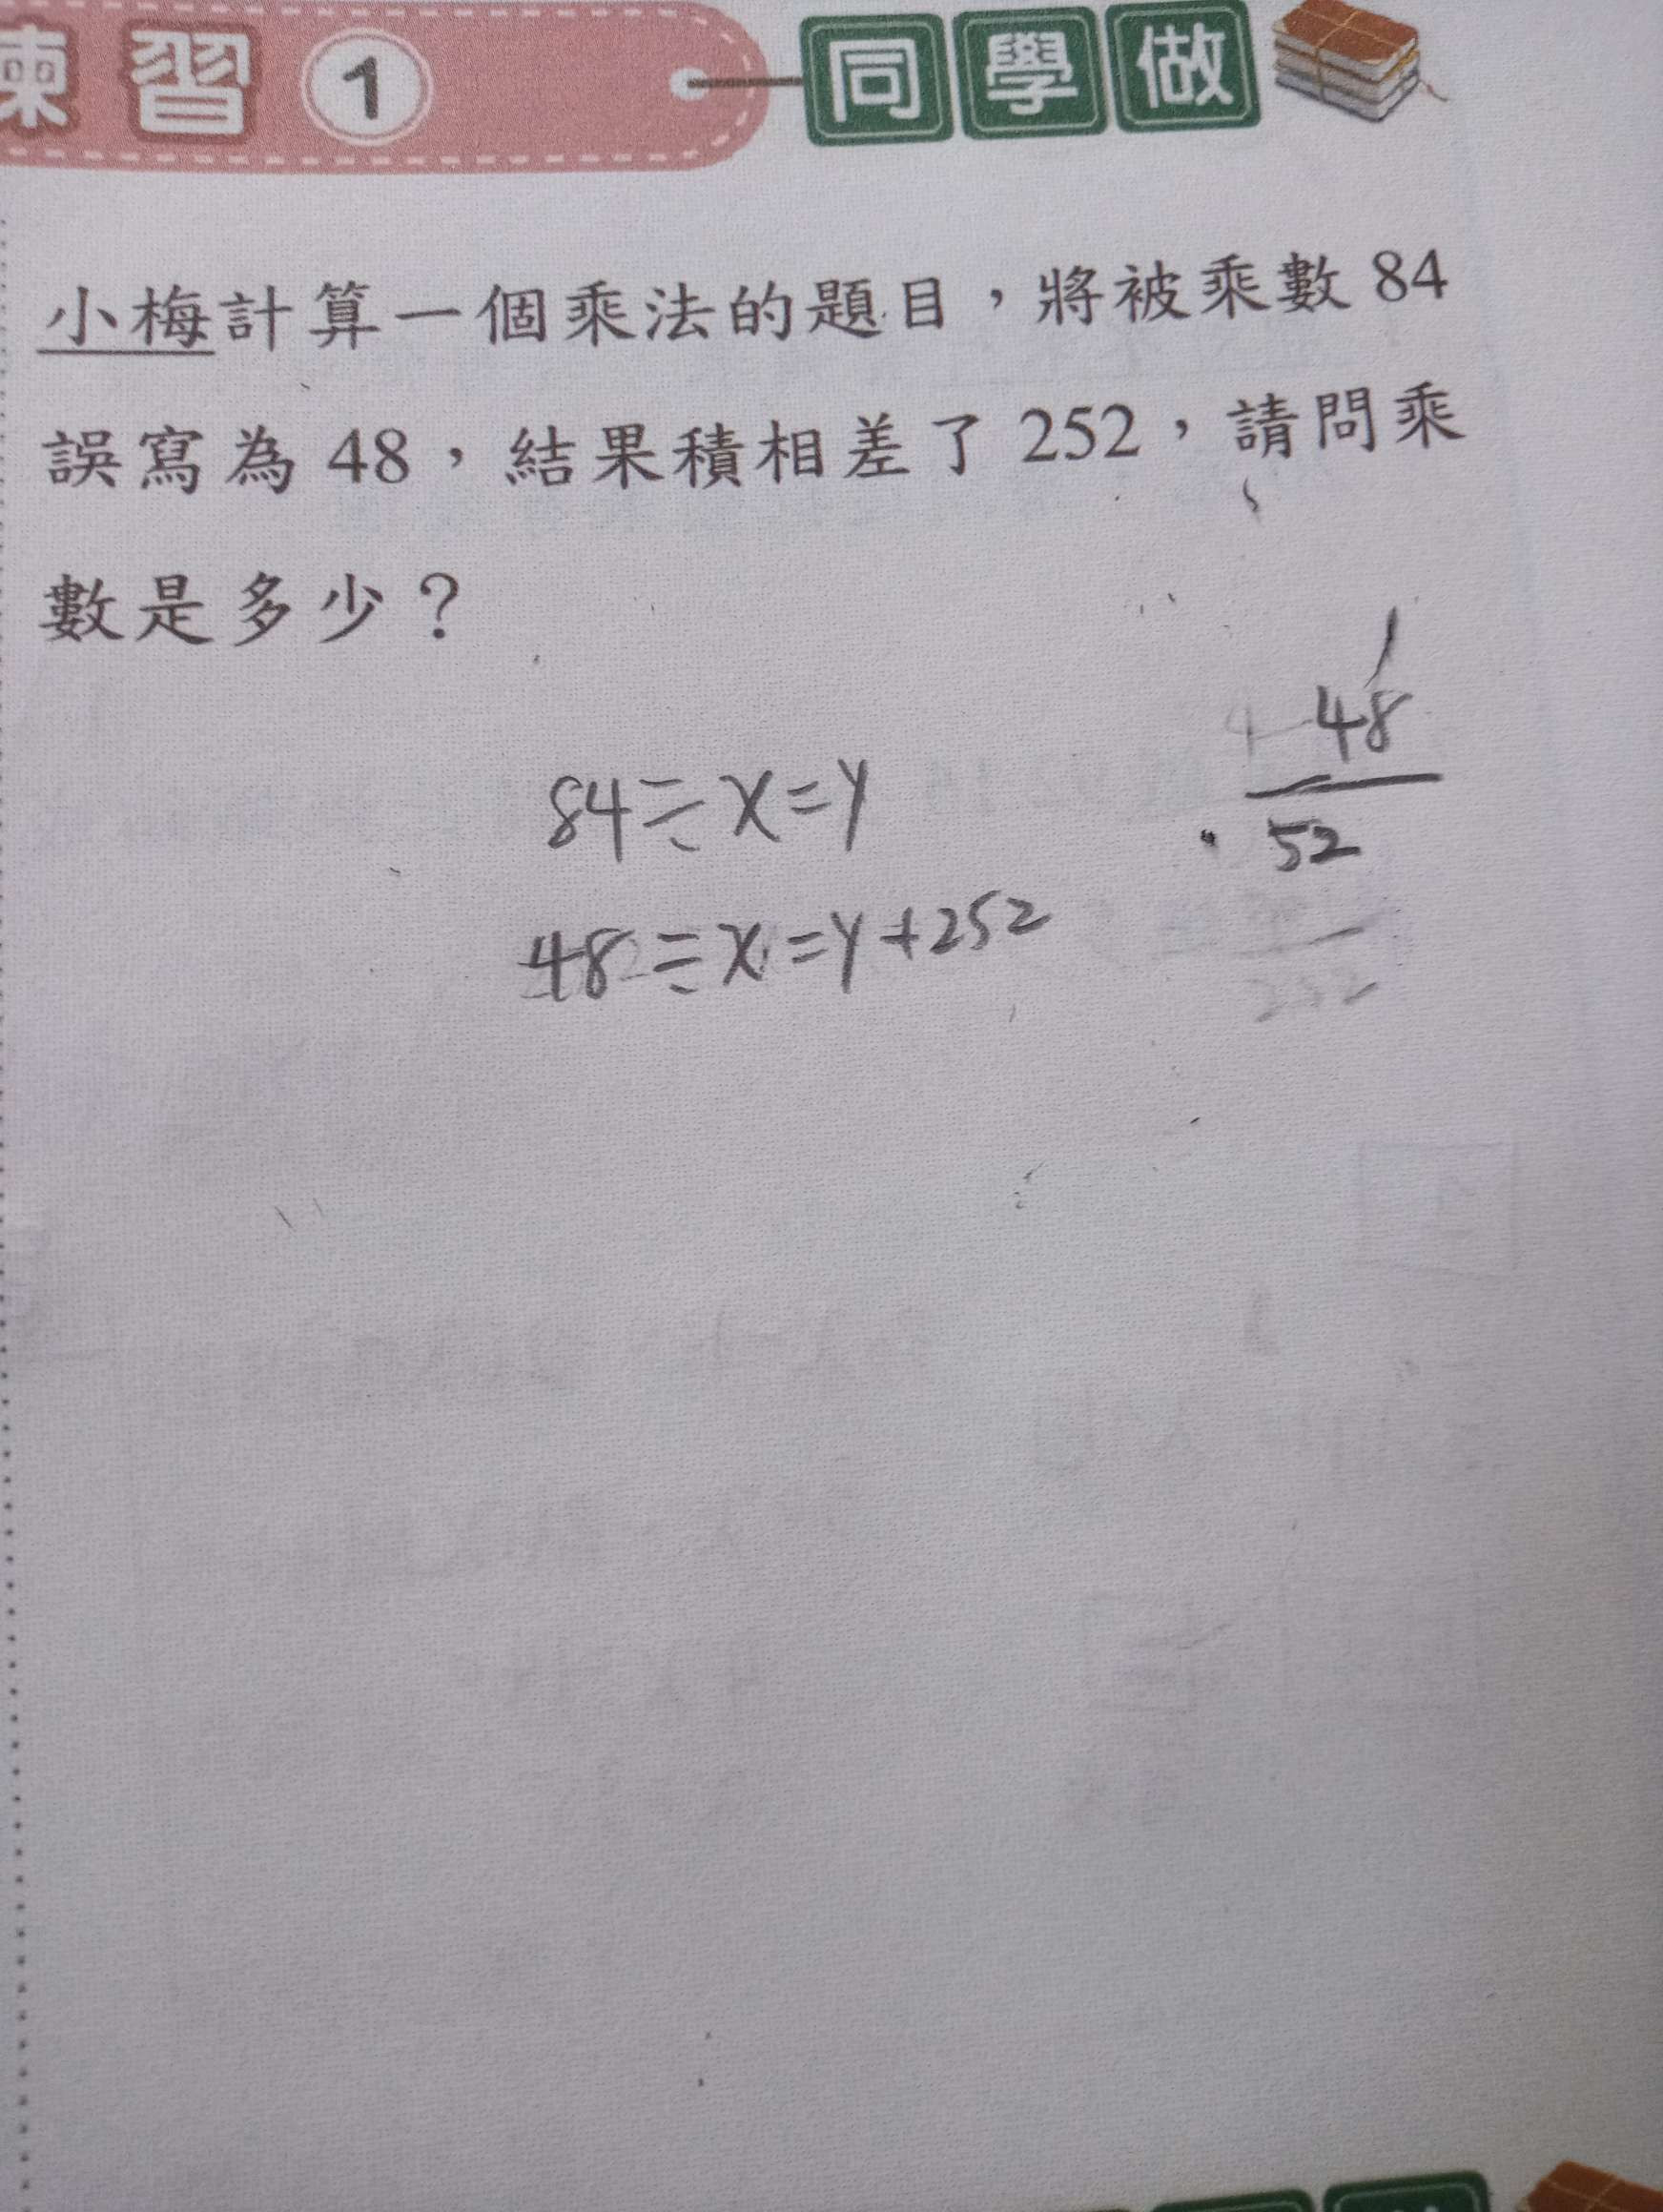 練習 1 同學做
小梅計算一個乘法的題目，將被乘數 84
誤寫為 48，結果積相差了 252，請問乘
數是多少？
48
52
84÷x=y
48÷x=y+252